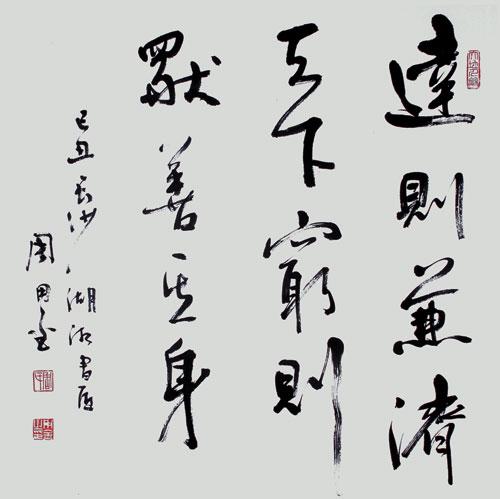 達則兼濟
天下窮則
獨善其身
己丑長沙湖湘書屋
周用金